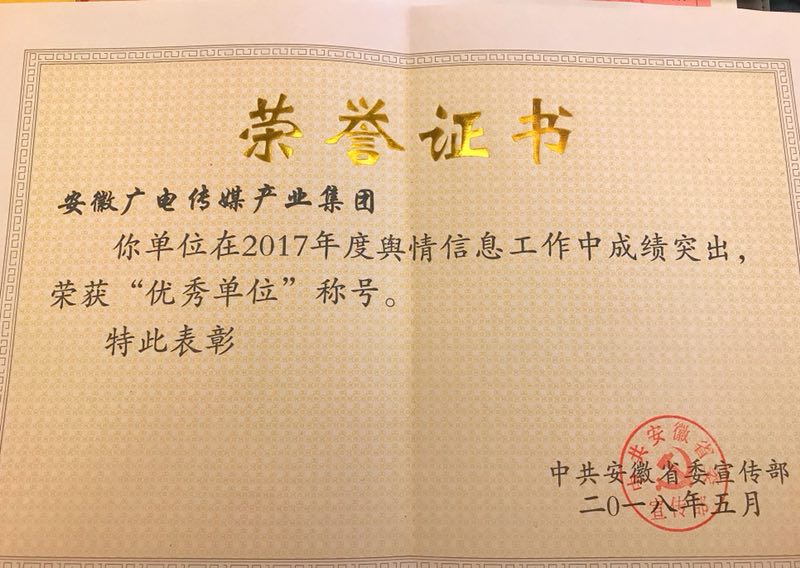 荣誉证书
安徽广电传媒产业集团
你单位在2017年度舆情信息工作中成绩突出，
荣获“优秀单位”称号。
特此表彰
中共安徽省委宣传部
二〇一八年五月
中共安徽省委
宣传部